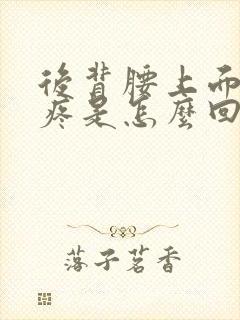 後背腰上面
疼是怎麼回
落子茗香